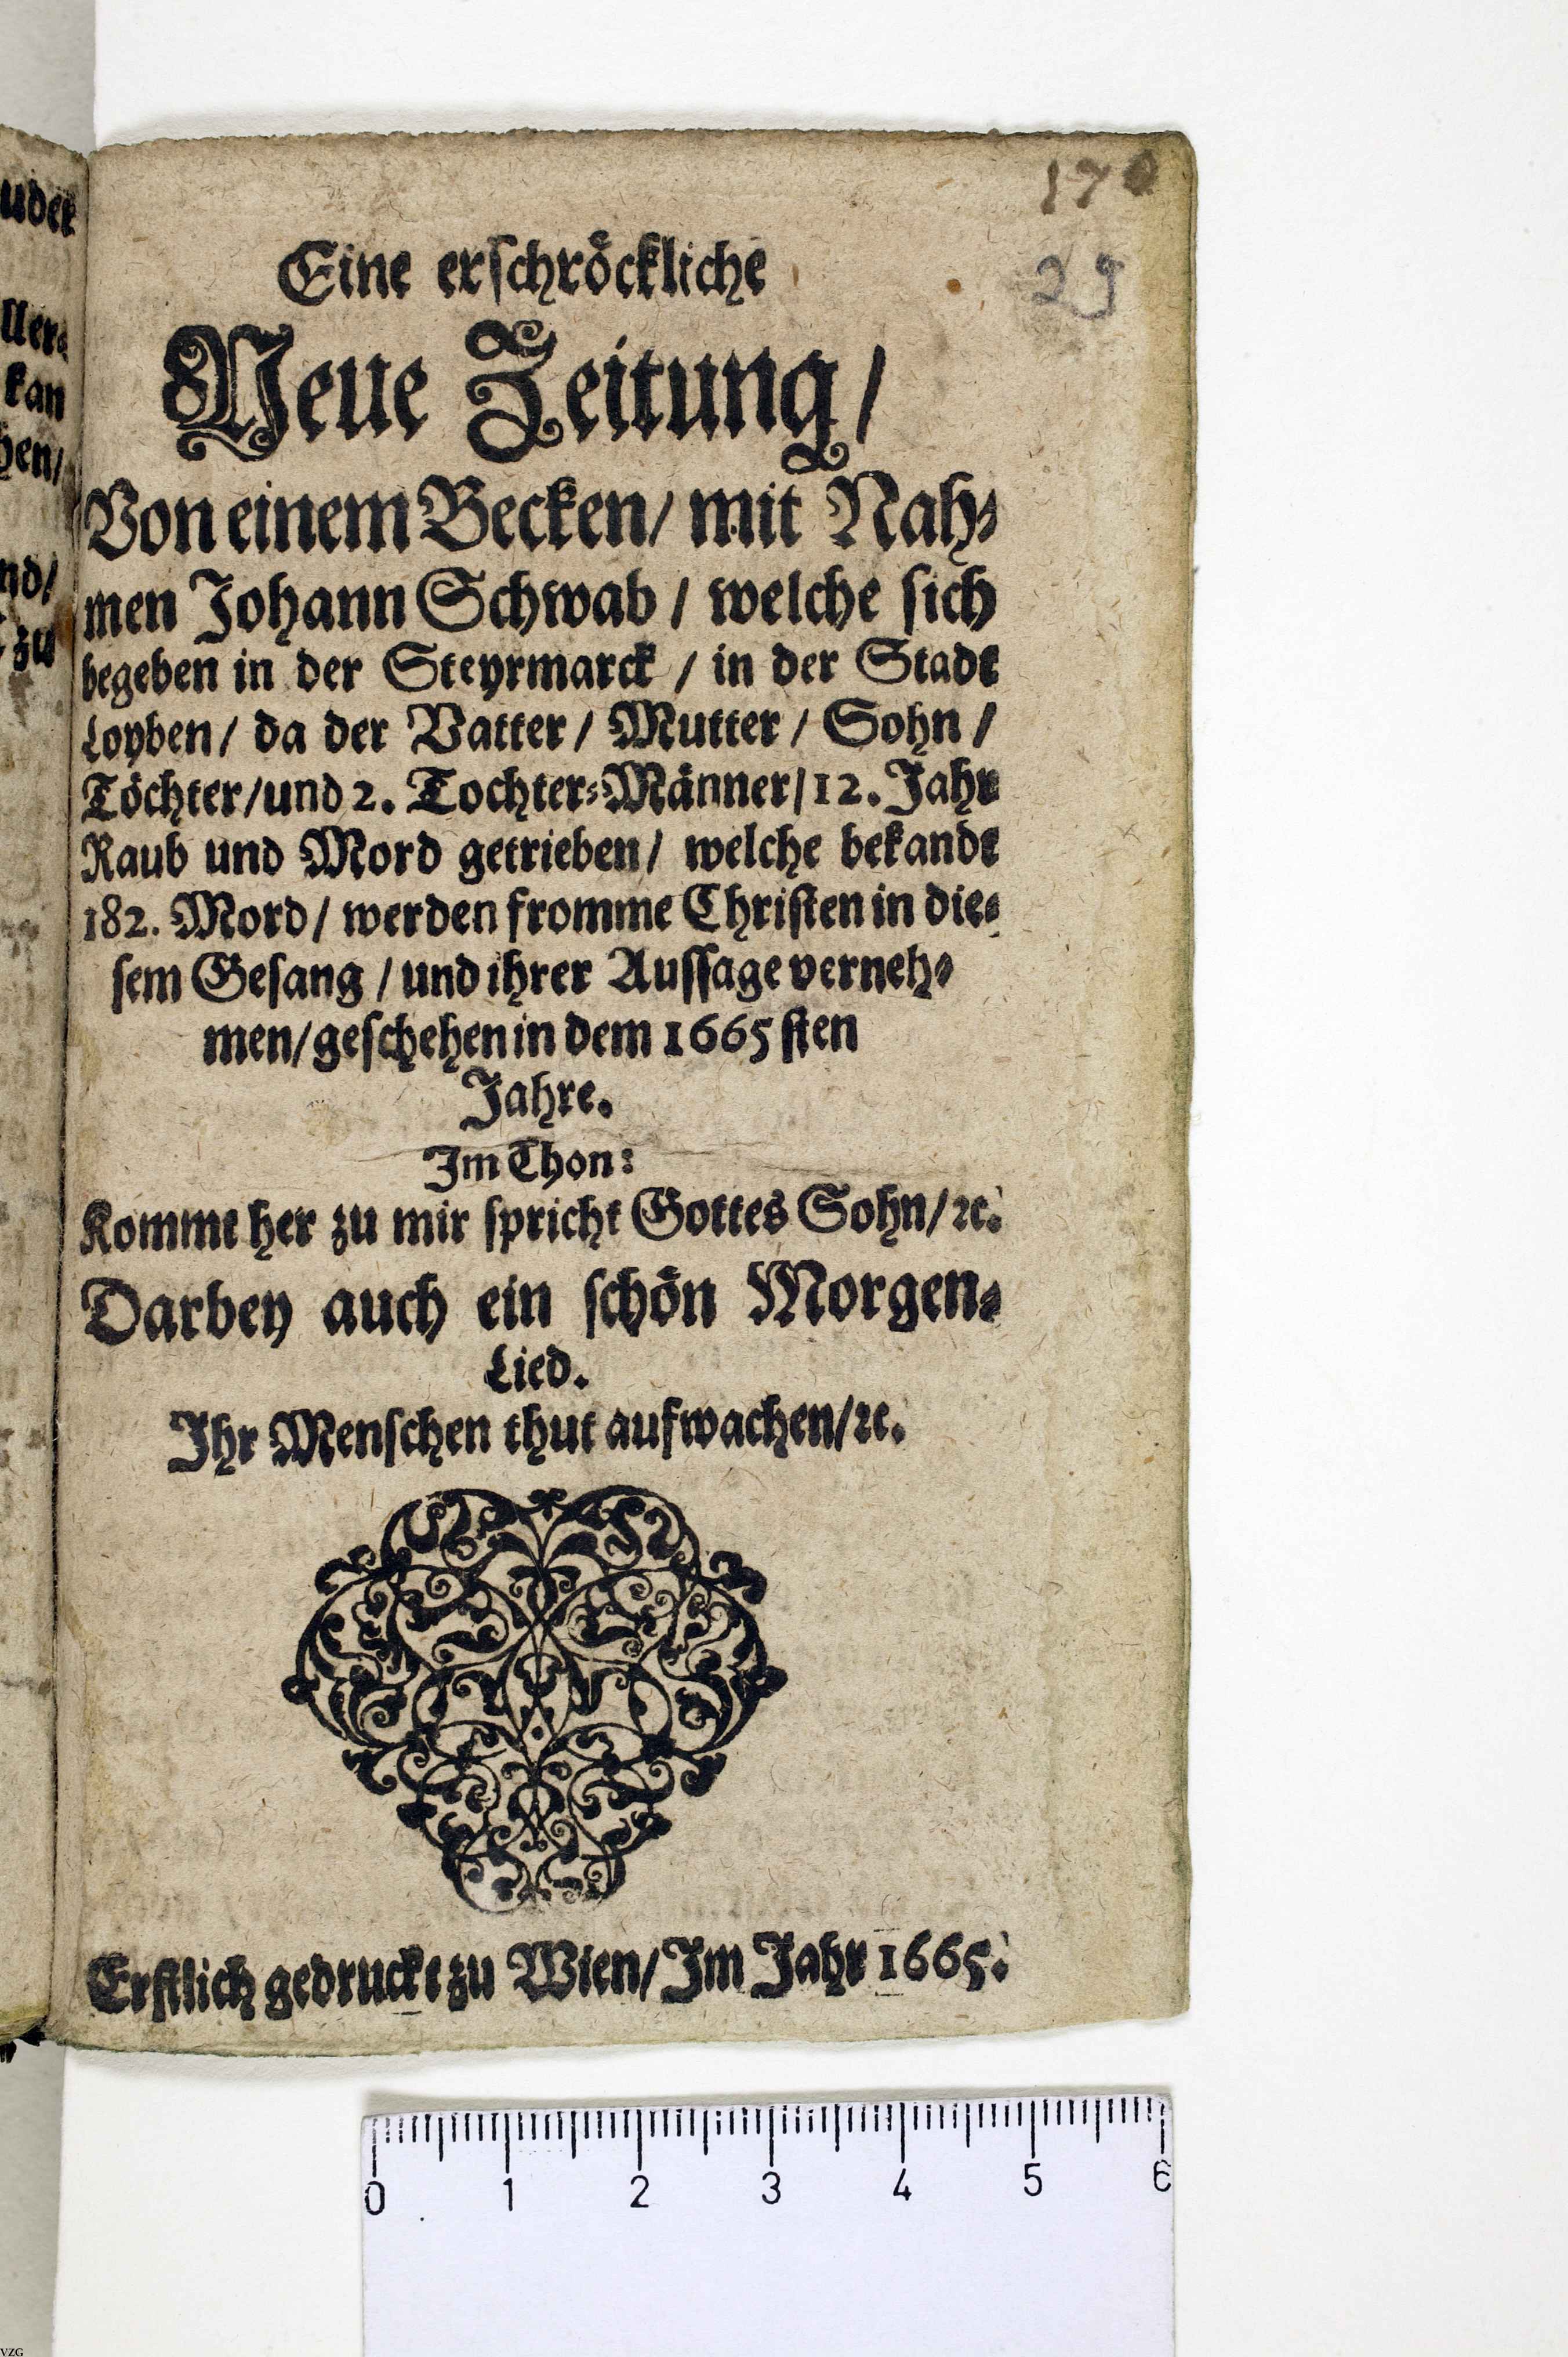 170
29
Eine erschröckliche
Neue Zeitung/
Von einem Becken/ mit Nah-
men Johann Schwab / welche sich
begeben in der Steyrmarck / in der Stadt
Loyben/ da der Vatter/ Mutter/ Sohn/
Töchter/und 2. Tochter-Männer/12. Jahr
Raub und Mord getrieben/ welche bekandt
182. Mord/ werden fromme Christen in die-
sem Gesang / und ihrer Aussage verneh-
men/geschehen in dem 1665 sten
Jahre.
Im Thon:
Kommt her zu mir spricht Gottes Sohn/ꝛc.
Darbey auch ein schön Morgen-
Lied.
Ihr Menschen thut aufwachen/ꝛc.
Erstlich gedruckt zu Wien/Im Jahr 1665.
uder
ller-
kan
hen/
nd/
zu
0 1 2 3 4 5 6
VZG